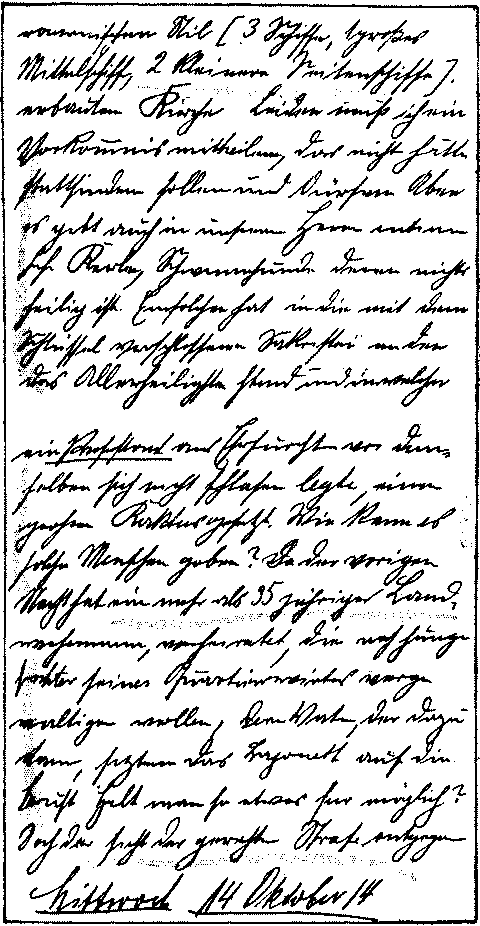 romanischen Stil [3 Schiffe, 1 großes
Mittelschiff, 2 kleinere Seitenschiffe].
erbauten Kirche Leider muß ich ein
Vorkommnis mitteilen, das nicht hätte
stattfinden sollen und dürfen Aber
es gibt auch in unserem Heere
Kerle, Schweinehunde denen nichts
heilig ist. Ein solcher hat in die mit dem
Schlüssel verschlossene Sakristei in der
das Allerheiligste stand und in welcher
ein Protestant aus Ehrfurcht vor dem-
selben sich nicht schlafen legte, einen
großen Kaktus gesetzt. Wie kann es
solche Menschen geben? In der vorigen
Nacht hat ein mehr als 35 jähriger Land-
wehrmann, verheiratet, die noch junge
Tochter seines Quartierwirtes verge
waltigen wollen, dem Vater, der dazu
kam, setzte er das Bajonett auf die
Brust Hält man so etwas für möglich?
Doch der sieht der gerechten Strafe entgegen
Mittwoch 14 Oktober 14